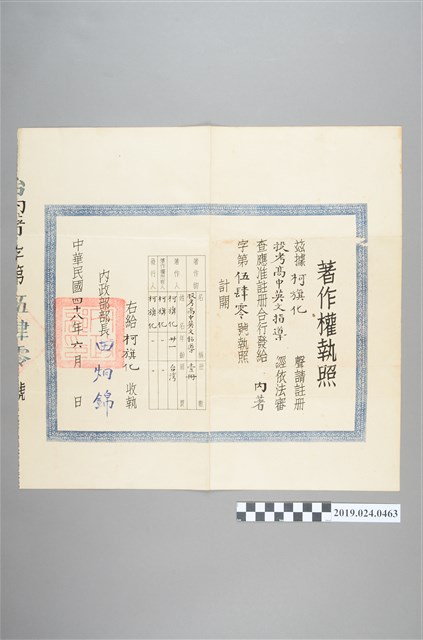 著作權執照
茲據 柯旗化 聲請註冊
投考高中英文指導 經依法審
查應准註冊合行發給 內著
字第伍肆零號執照
計開
著作物
投考高中英文指導 壹冊
著作人 柯旗化 卅一 台灣
柯旗化
發行人 柯旗化
右給 柯旗化 收執
內政部部長 田炯錦
中華民國四十八年六月 日
字第伍肆零號
2019.024.0463